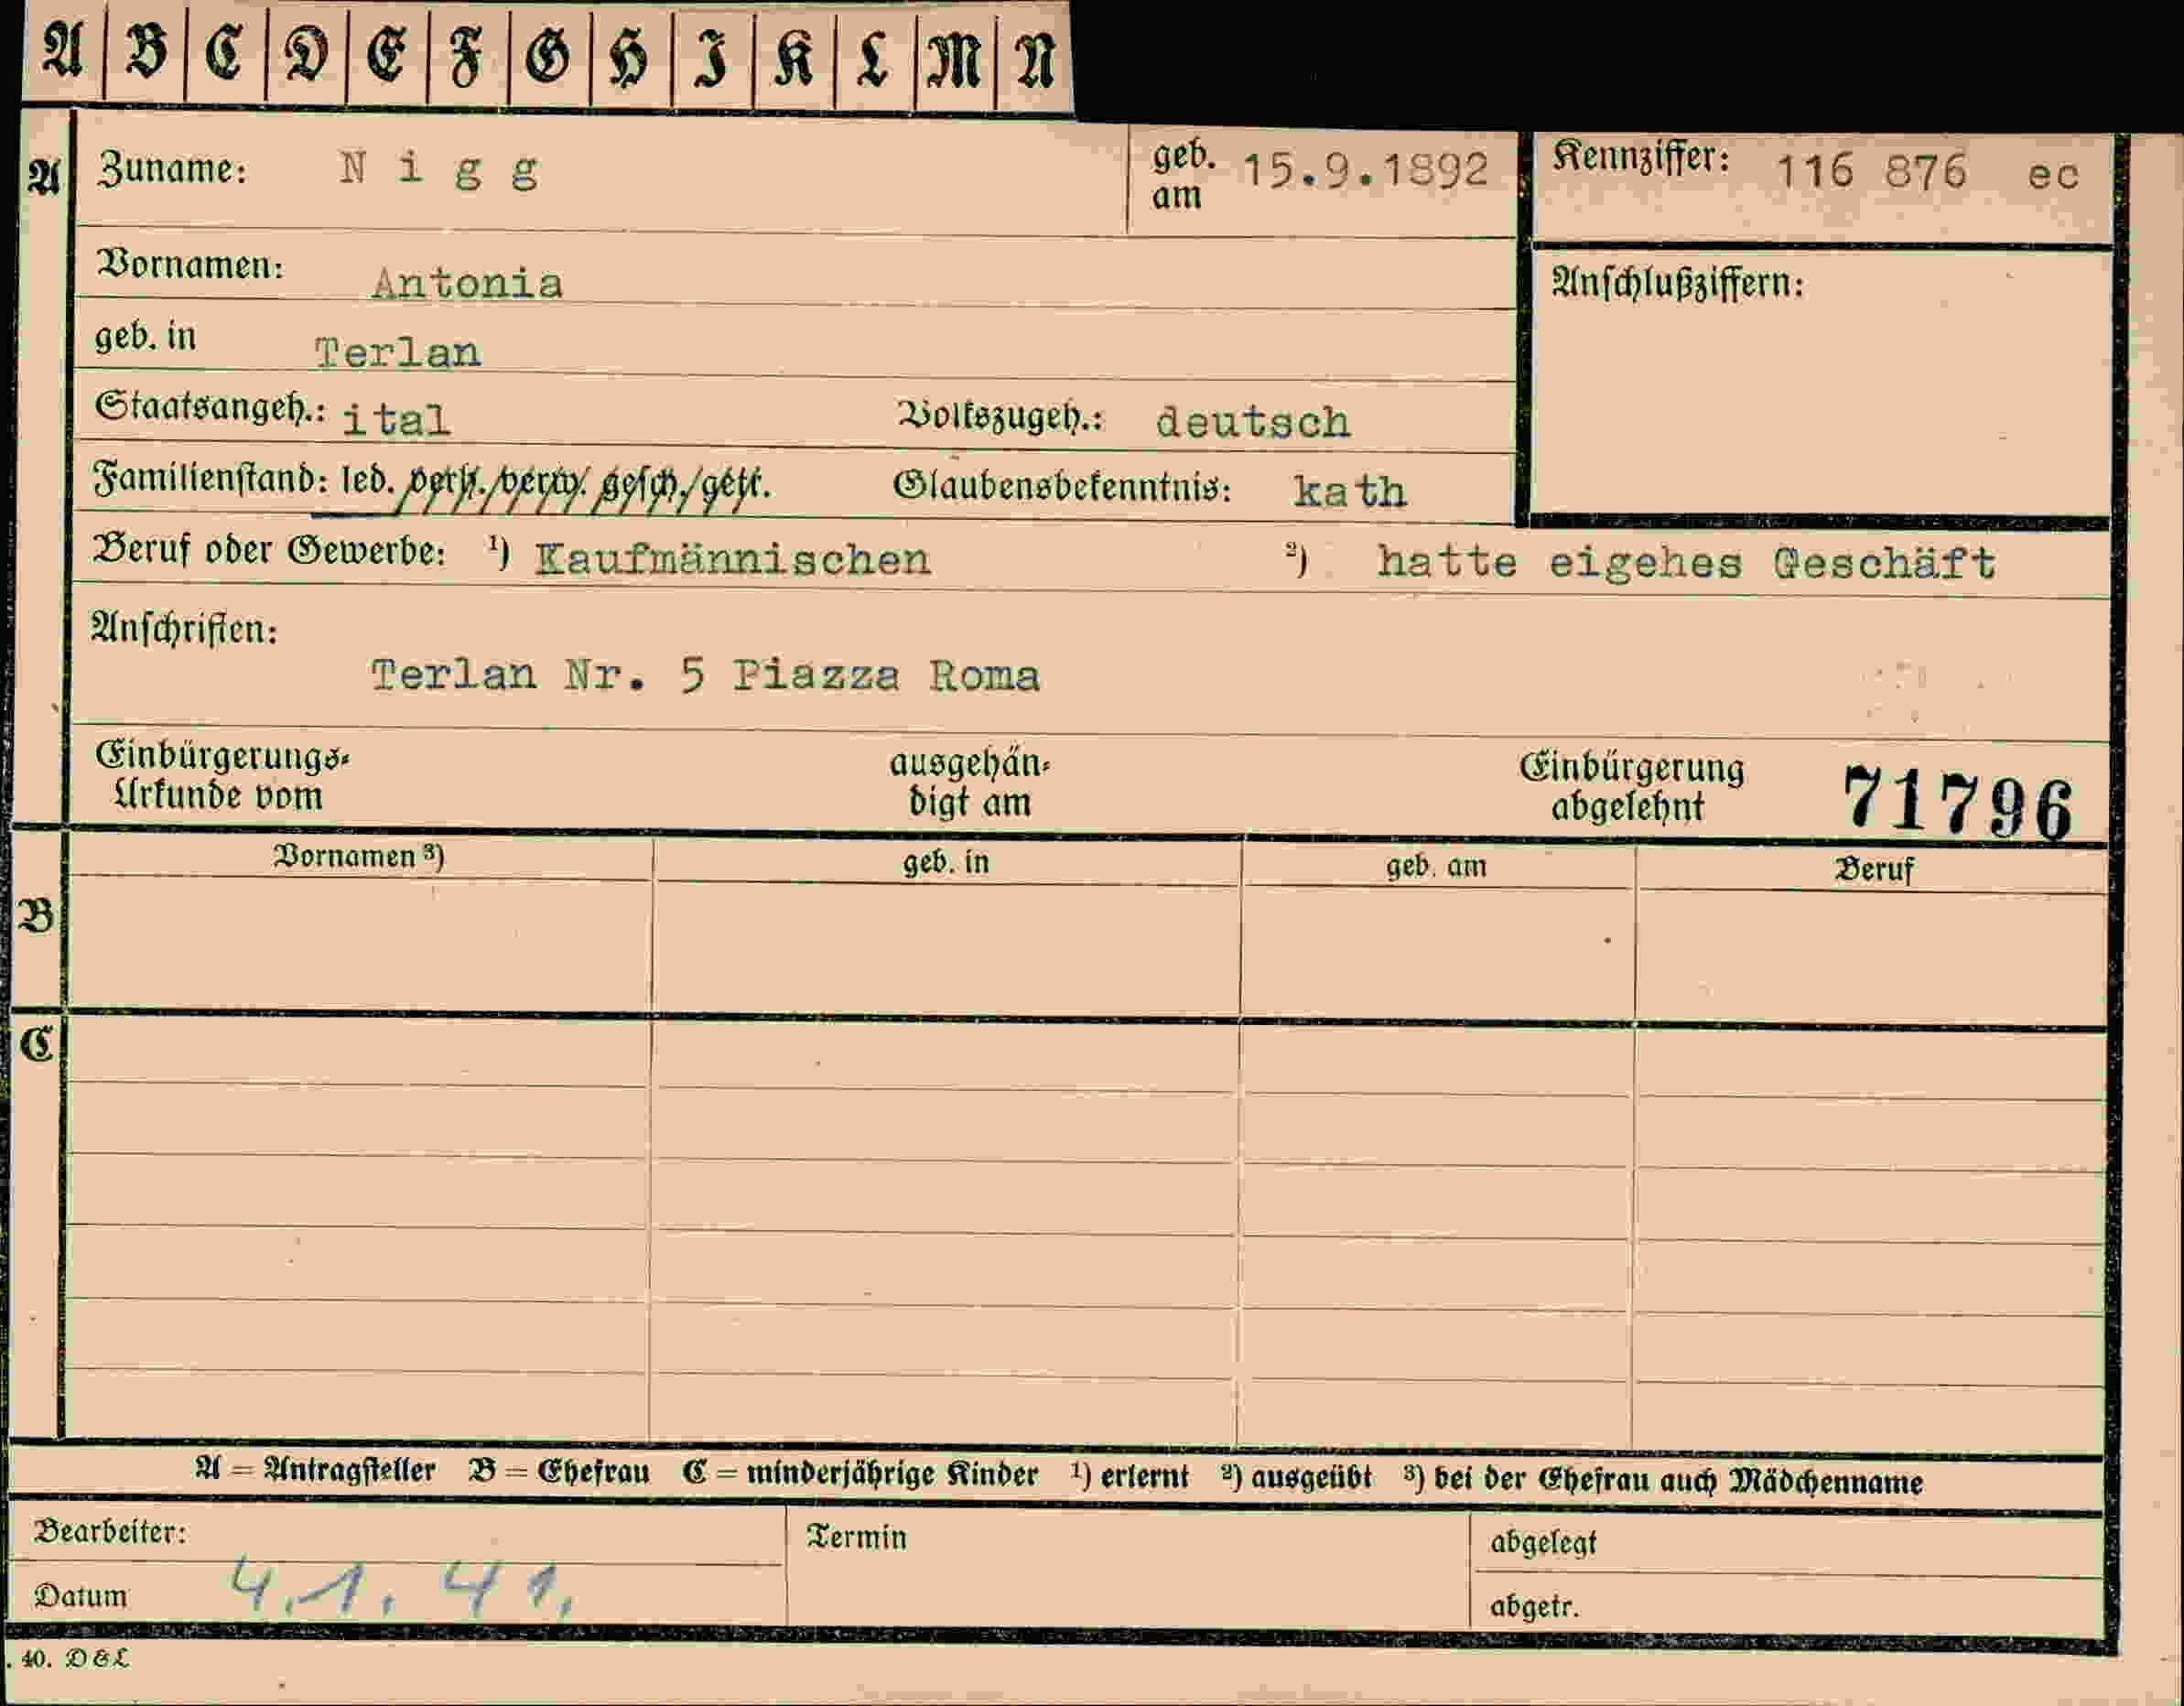 A B C D E F G H I K L M N
A Zuname: Nigg geb. am 15.9.1892 Kennziffer: 116 876 ec
Vornamen: Antonia Anschlußziffern:
geb. in Terlan
Staatsangeh.: ital Volkszugeh.: deutsch
Familienstand: led. verh./verw. gesch./getr. Glaubensbekenntnis: kath
Beruf oder Gewerbe: ¹) Kaufmännischen ²) hatte eigehes Geschäft
Anschriften:
Terlan Nr. 5 Piazza Roma
Einbürgerungs- ausgehän- Einbürgerung
Urkunde vom digt am abgelehnt 71796
Vornamen ³) geb. in geb. am Beruf
B
C
A = Antragsteller B = Ehefrau C = minderjährige Kinder ¹) erlernt ²) ausgeübt ³) bei der Ehefrau auch Mädchenname
Bearbeiter: Termin abgelegt
Datum 4.1.41. abgetr.
. 40. D & L